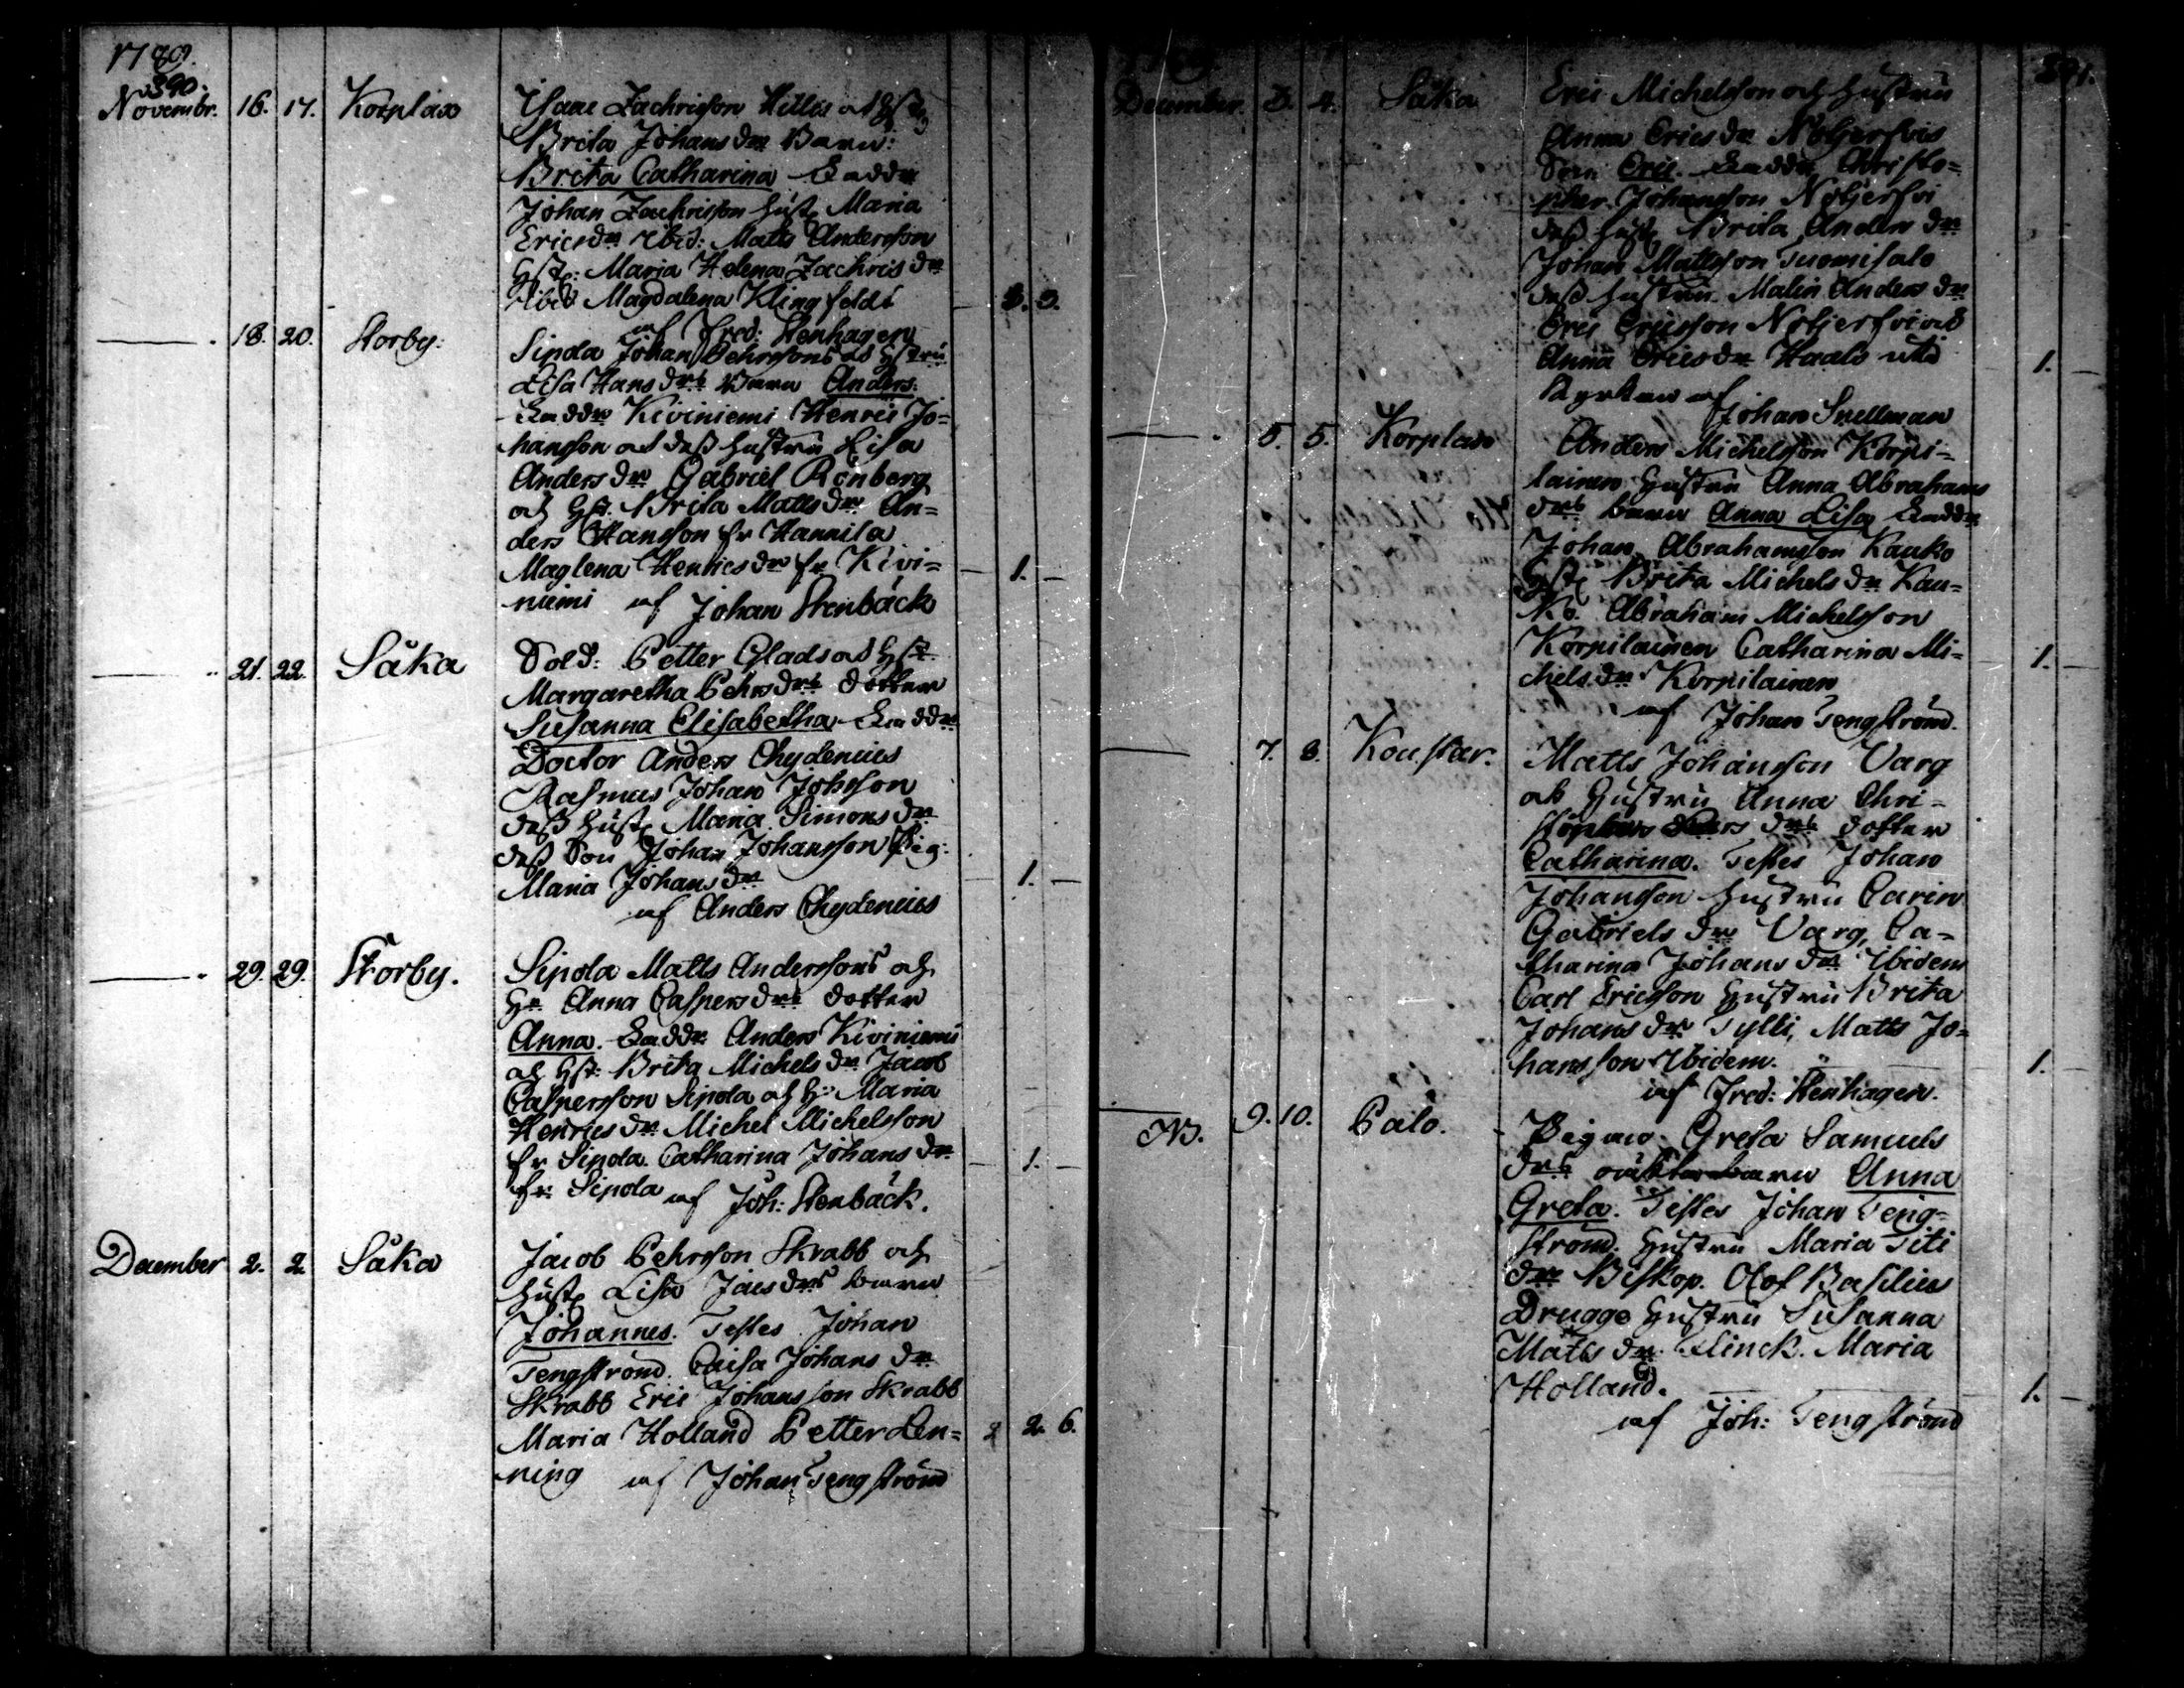 1789.
390.
Novembr. 16. 17. Korplax Isaac Zachrisson Hilli och Hstr
Brita Johans dr Barn:
Brita Catharina Faddr
Johan Zachrisson Hust Maria
Erics dr Ibid: Matts Andersson
Hst: Maria Helena Zachris dr
Ibid Magdalena Klingfeldt 3. 3.
af Fred. Stenhagen
18. 20. Storby: Sipola Johan Pehrssons och Hustru
Lisa Hans drs Barn Anders.
Faddr Kiviniemi Henric Jo=
hansson och dess Hustru Lisa
Anders dr Gabriel Rönberg
och Hst. Brita Matts dr An=
ders Hansson fr Hannila
Maglena Henrics dr fr Kivi= 1. —
niemi af Johan Stenbäck
21. 22. Såka Sold: Petter Glads och Hst
Margaretha Pehrs drs dotter
Susanna Elisabetha Faddr
Doctor Anders Chydenius
Rasmus Johan Johsson
dess Hust Maria Simons dr
dess Son Johan Johansson Pig:
Maria Johans dr — 1. —
af Anders Chydenius
29. 29. Storby. Sipola Matts Anderssons och
Hu Anna Caspers drs dotter
Anna. Faddr Anders Kiviniemi
och Hst: Brita Michels dr Jacob
Caspersson Sipola och H: Maria
Henrics dr Michel Michelsson
fr Sipola. Catharina Johans dr — 1. —
fr Sipola af Joh: Stenbäck.
December 2. 2. Såka Jacob Pehrsson Skrabb och
Hust Lisa Jacs drs barn
Johannes. Testes Johan
Tengström. Caisa Johans dr
Skrabb Eric Johansson Skrabb
Maria Holland Petter Len= 2 2. 6.
ning af Johan Tengström
391.
December 3. 4. Såka Eric Michelsson och Hustru
Anna Erics dr
Son Eric. Faddr Christo=
pher Johansson
dess Hust Brita Anders dr
Johan Mattsson Tuomisalo
dess Hustru Malin Anders dr
Eric Ericsson
Anna Erics dr 1. —
Kyrkan af
Johan Snellman
5. 5. Korplax Anders Michelsson Korpi=
lainen Hustru Anna Abrahams
drs barn Anna Lisa Faddr
Johan Abrahamsson Kauko
Hst Brita Michels dr Kau=
ko. Abraham Michelsson
Korpilainen Catharina Mi= 1. —
chels dr Korpilainen
af Johan Tengström.
7. 8. Matts Johansson Varg
och Hustru Anna Chri=
stophers drs dotter
Catharina. Testes Johan
Johansson Hustru Carin
Gabriels dr Varg, Ca=
tharina Johans dr Ibidem
Carl Ericsson Hustru Brita
Johans dr Tylli, Matts Jo=
hansson Ibidem. 1. —
af Fred: Stenhagen.
NB. 9. 10. Palo. Pigan Greta Samuels
drs barn Anna
Greta. Testes Johan Teng=
ström. Hustru Maria Titi
dr Biskop. Olof Basilius
Drugge Hustru Susanna
Matts dr Klinck. Maria
Holland. 1. —
af Joh: Tengström